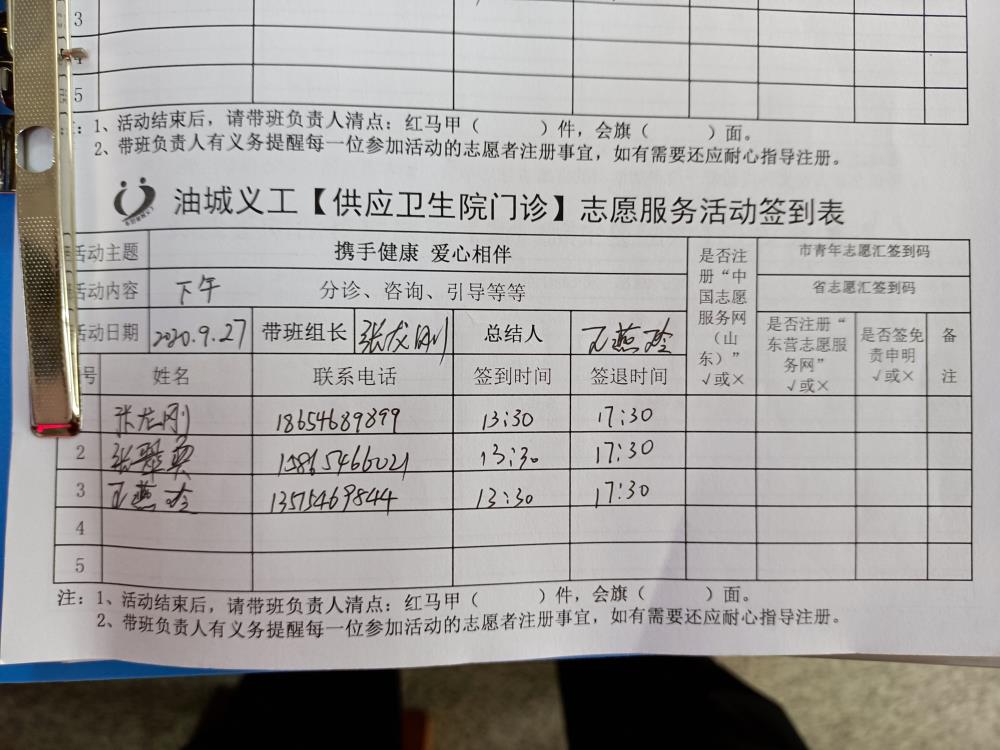 3
5
1、活动结束后，请带班负责人清点：红马甲（ ）件，会旗（ ）面。
2、带班负责人有义务提醒每一位参加活动的志愿者注册事宜，如有需要还应耐心指导注册。
油城义工【供应卫生院门诊】志愿服务活动签到表
活动主题 携手健康 爱心相伴 是否注册“中国志愿服务网（山东）” √或× 市青年志愿汇签到码
活动内容 下午 分诊、咨询、引导等等 省志愿汇签到码
活动日期 2020.9.27 带班组长 张龙刚 总结人 王燕玲 是否注册“东营志愿服务网” √或× 是否签免责申明 √或× 备注
号 姓名 联系电话 签到时间 签退时间
张龙刚 18654689899 13:30 17:30
2 张 15865466021 13:30 17:30
3 王燕玲 13575469844 13:30 17:30
4
5
注：1、活动结束后，请带班负责人清点：红马甲（ ）件，会旗（ ）面。
2、带班负责人有义务提醒每一位参加活动的志愿者注册事宜，如有需要还应耐心指导注册。